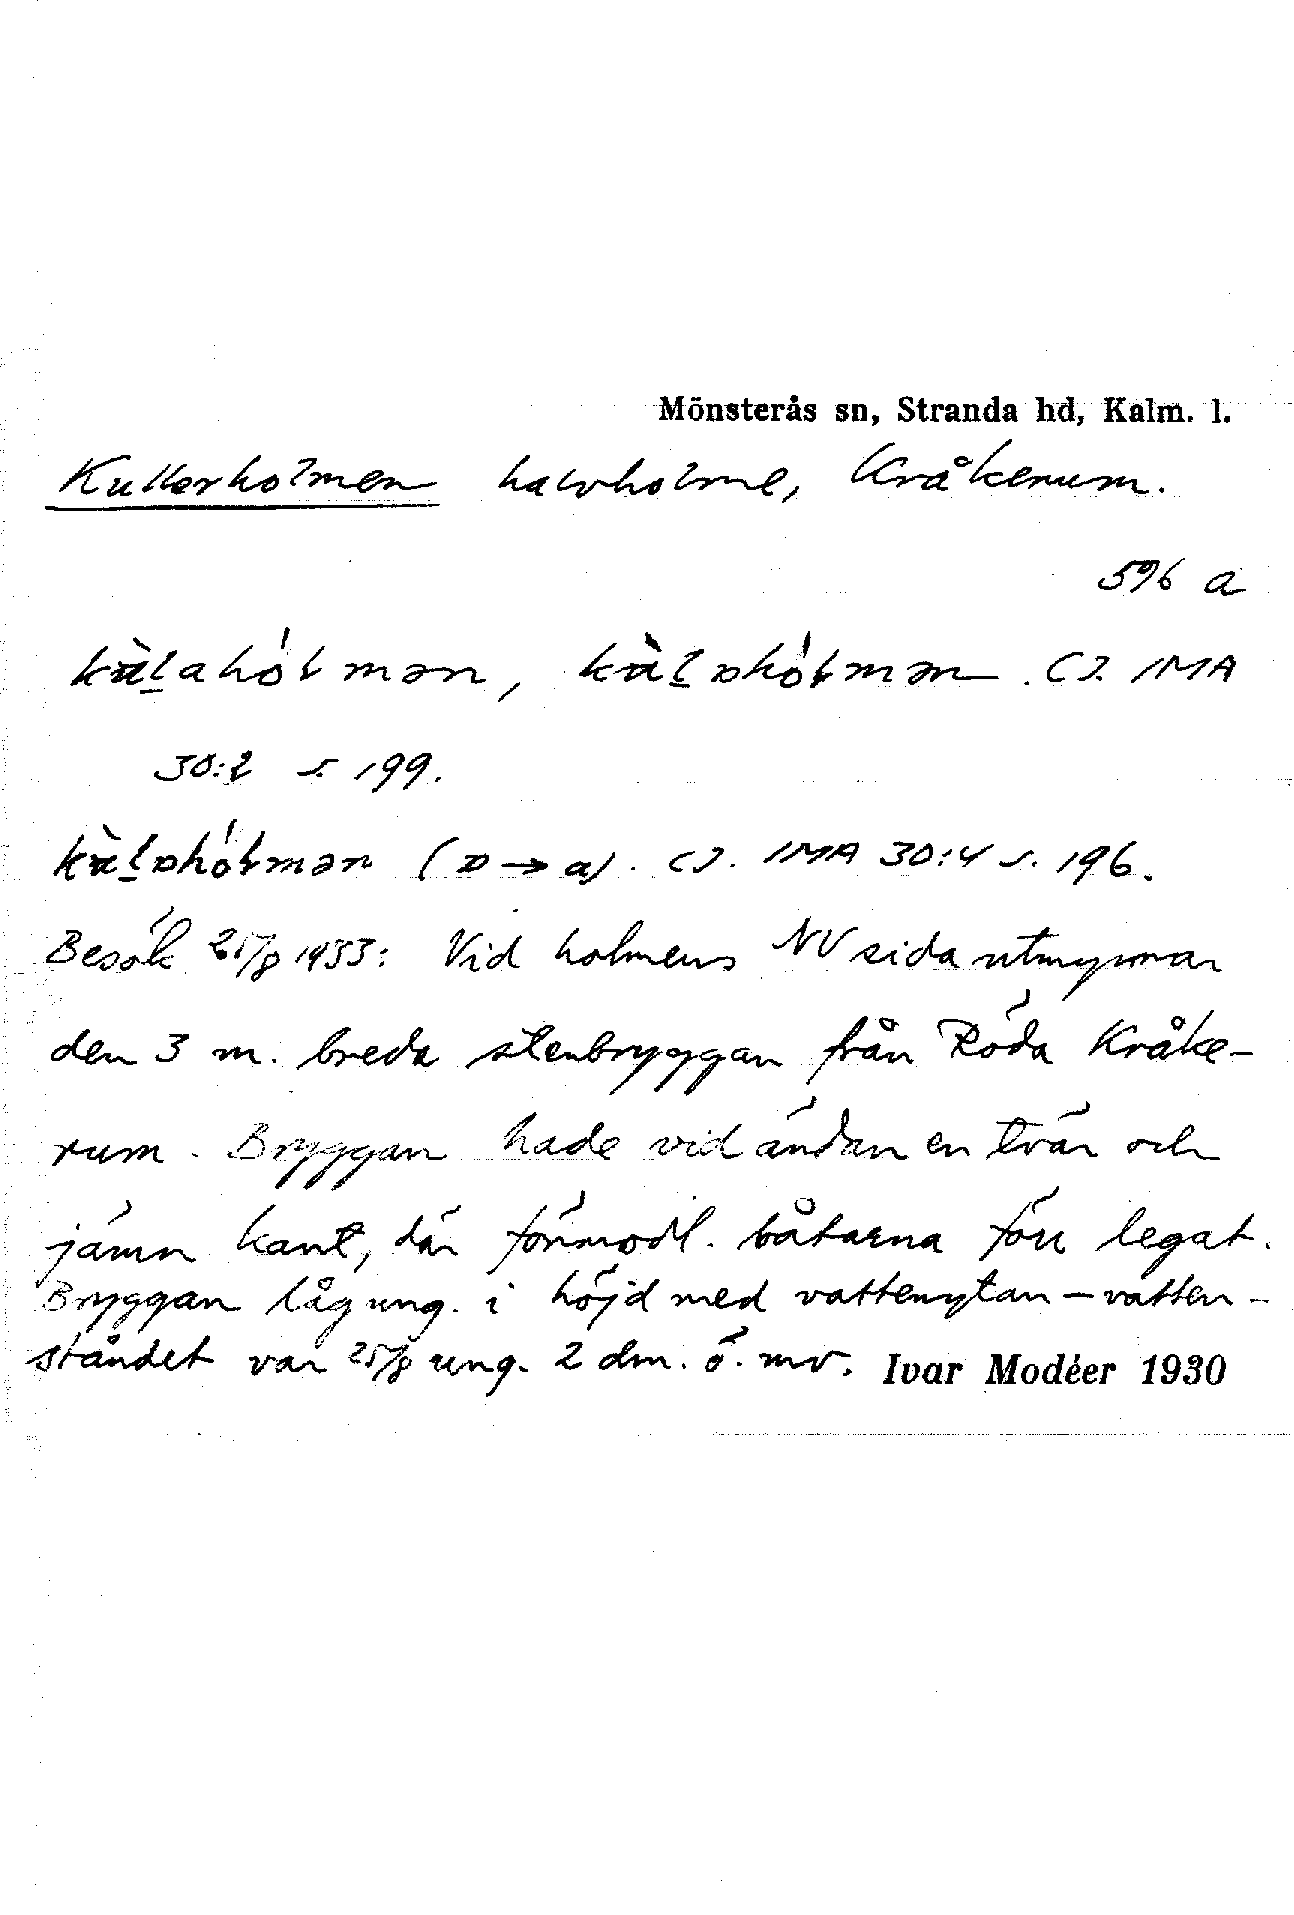 Mönsterås sn, Stranda hd, Kalm. l.
Kullerholmen halvholme, Kråkerum.
596 a
kùlahólmən, kùlɒhólmən. CJ. IMA
30:2 s. 199.
kùlɒhólmən (ɒ → a). CJ. IMA 30:4 s. 196.
Besök 25/8 1933: Vid holmens NV sida utmynnar
den 3 m. breda stenbryggan från Röda Kråke-
rum. Bryggan hade vid ändan en tvär och
jämn kant, där förmodl. båtarna förr legat.
Bryggan låg ung. i höjd med vattenytan – vatten-
ståndet var 25/8 ung. 2 dm. ö. mv. Ivar Modéer 1930